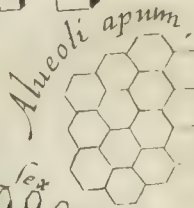 Alueoli apum.
Sex